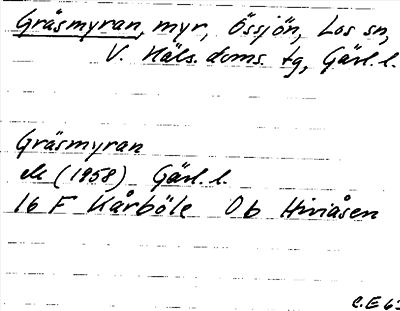 Gräsmyran, myr, Össjön, Los sn,
V. Häls. doms. tg, Gävl. l.
Gräsmyran
ek (1958) Gävl. l.
16 F Kårböle 0b Hiviåsen
C.E 63